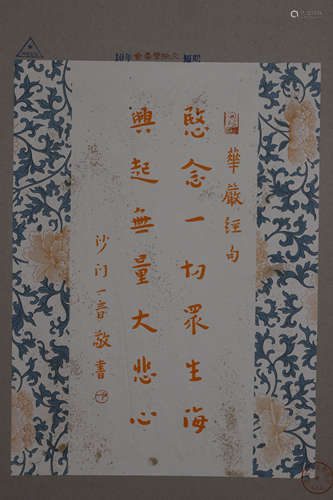 華嚴經句
愍念一切眾生海
興起無量大悲心
沙门一音敬書